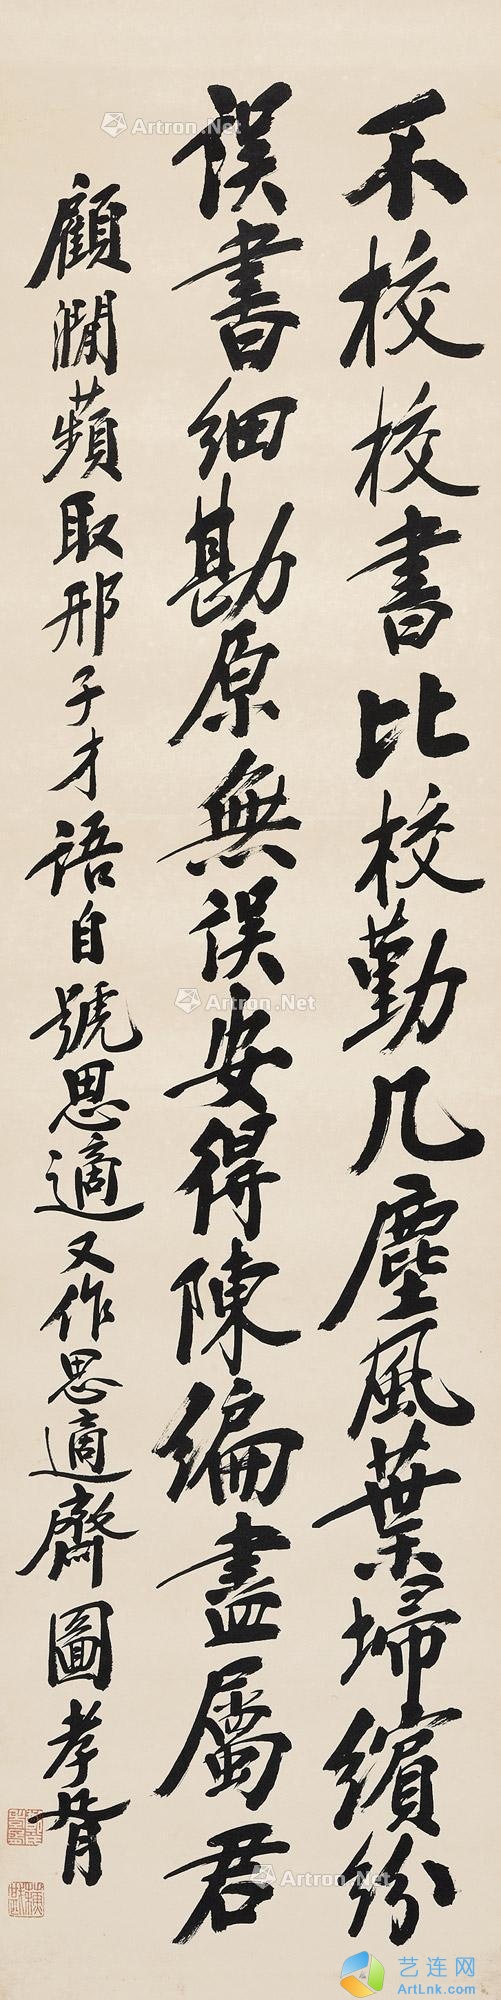 不校校書比校勤几塵風葉埽繽紛
误書細勘原無误安得陳編盡屬君
顧澗蘋取邢子才語自號思適又作思適齋圖孝胥
Artron.Net
Artron.Net
Artron.Net
艺连网
ArtLnk.com